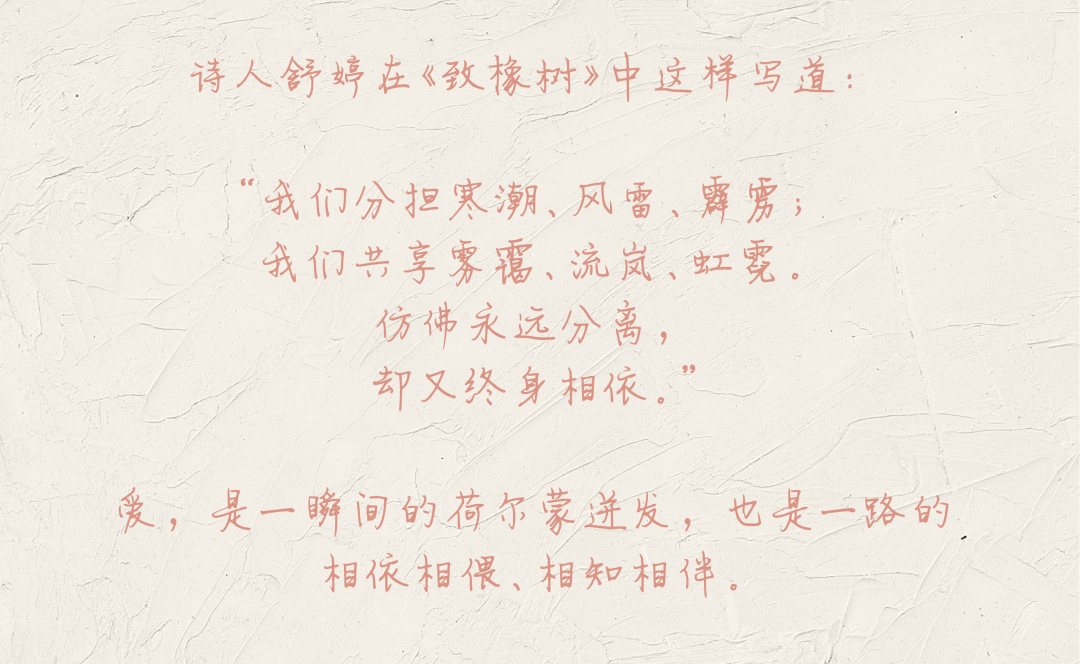 诗人舒婷在《致橡树》中这样写道：
“我们分担寒潮、风雷、霹雳；
我们共享雾霭、流岚、虹霓。
仿佛永远分离，
却又终身相依。”
爱，是一瞬间的荷尔蒙迸发，也是一路的
相依相偎、相知相伴。